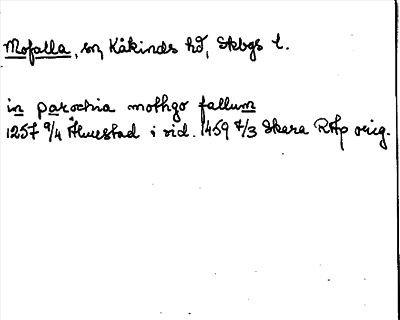 Mofalla, sn, Kåkinds hd, Skbgs l.
in parochia mothgo fallum
1257 9/4 Älvestad i vid. 1459 7/3 Skara RAp orig.